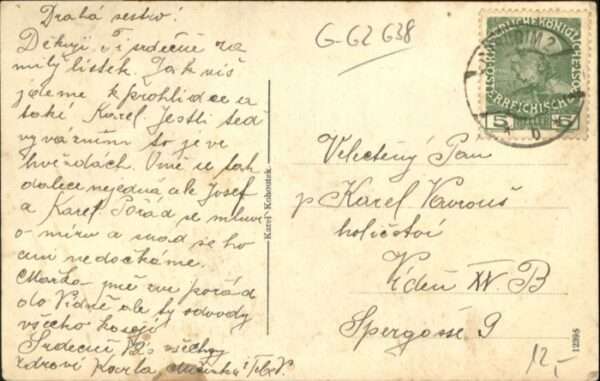 Drahá sestro!
Děkuji Ti srdečně za
milý lístek. Jak víš
jdeme k přohlídce a
také Karel Jestli teď
vyvázním to je ve
hvězdách. O mě se tak
dalece nejedná ale Josef
a Karel. Pořád se mluví
o míru a snad se ho
ani nedočkáme.
Mařka mě zve pořád
do Vídně ale ty odvody
všecko kazejí
Srdečně Vás všechny
zdraví Karla
G-G2 G38
KAISERLICHE KÖNIGLICHE ÖSTERREICHISCHE
5 5
Karel Kohoutek
Velectěný Pan
p Karel Vavrouš
holičství
Vídeň XV. B
Spergasse 9
12395
12,-